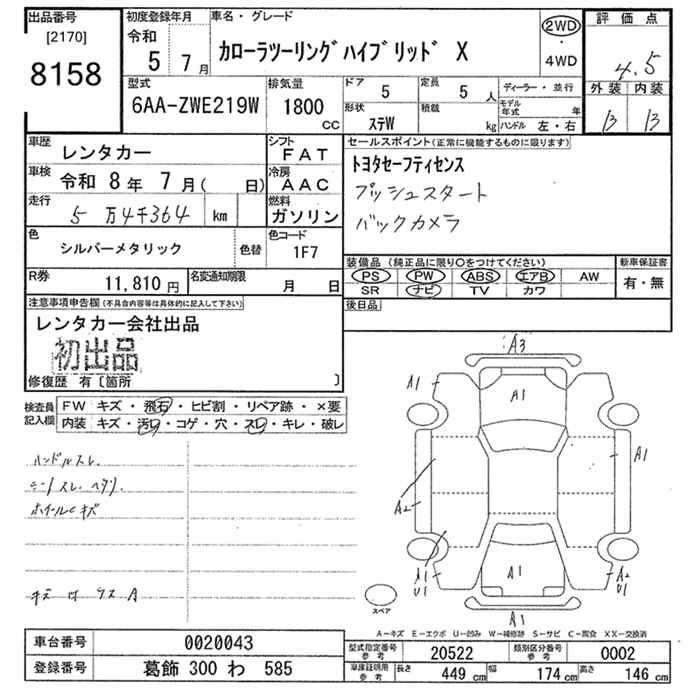 出品番号
[2170]
8158
初度登録年月
令和
5 7月
車名・グレード
カローラツーリングハイブリッド X
2WD
・
4WD
評価点
4.5
外装 内装
B B
型式
6AA-ZWE219W
排気量
1800
cc
ドア
5
定員
5 人
形状
ステW
積載
kg
ディーラー・並行
モデル年式 年
ハンドル 左・右
車歴
レンタカー
シフト
FAT
車検
令和 8年 7月( 日)
冷房
AAC
走行
5万4千364 km
燃料
ガソリン
色
シルバーメタリック
色替
色コード
1F7
R券
11,810円
名変通知期限
月 日
セールスポイント(正常に機能するものに限ります)
トヨタセーフティセンス
プッシュスタート
バックカメラ
装備品 (純正品に限り〇をつけてください)
PS PW ABS エアB AW
SR ナビ TV カワ
新車保証書
有・無
後日品
注意事項申告欄(不具合内容等は具体的に記入して下さい)
レンタカー会社出品
初出品
修復歴 有〔箇所 〕
検査員
記入欄
FW キズ・飛石・ヒビ割・リペア跡・×要
内装 キズ・汚れ・コゲ・穴・スレ・キレ・破レ
ハンドルスレ
シートスレ ヘタリ
ホイールCキズ
A3
A1
A1
A1
A2
A1
A1
U1
A2
U1
A1
スペア
A-キズ E-エクボ U-凹み W-補修跡 S-サビ C-腐食 XX-交換済
車台番号
0020043
登録番号
葛飾 300 わ 585
型式指定番号
参考
20522
類別区分番号
参考
0002
車庫証明用
参考
長さ 449cm 幅 174cm 高さ 146cm